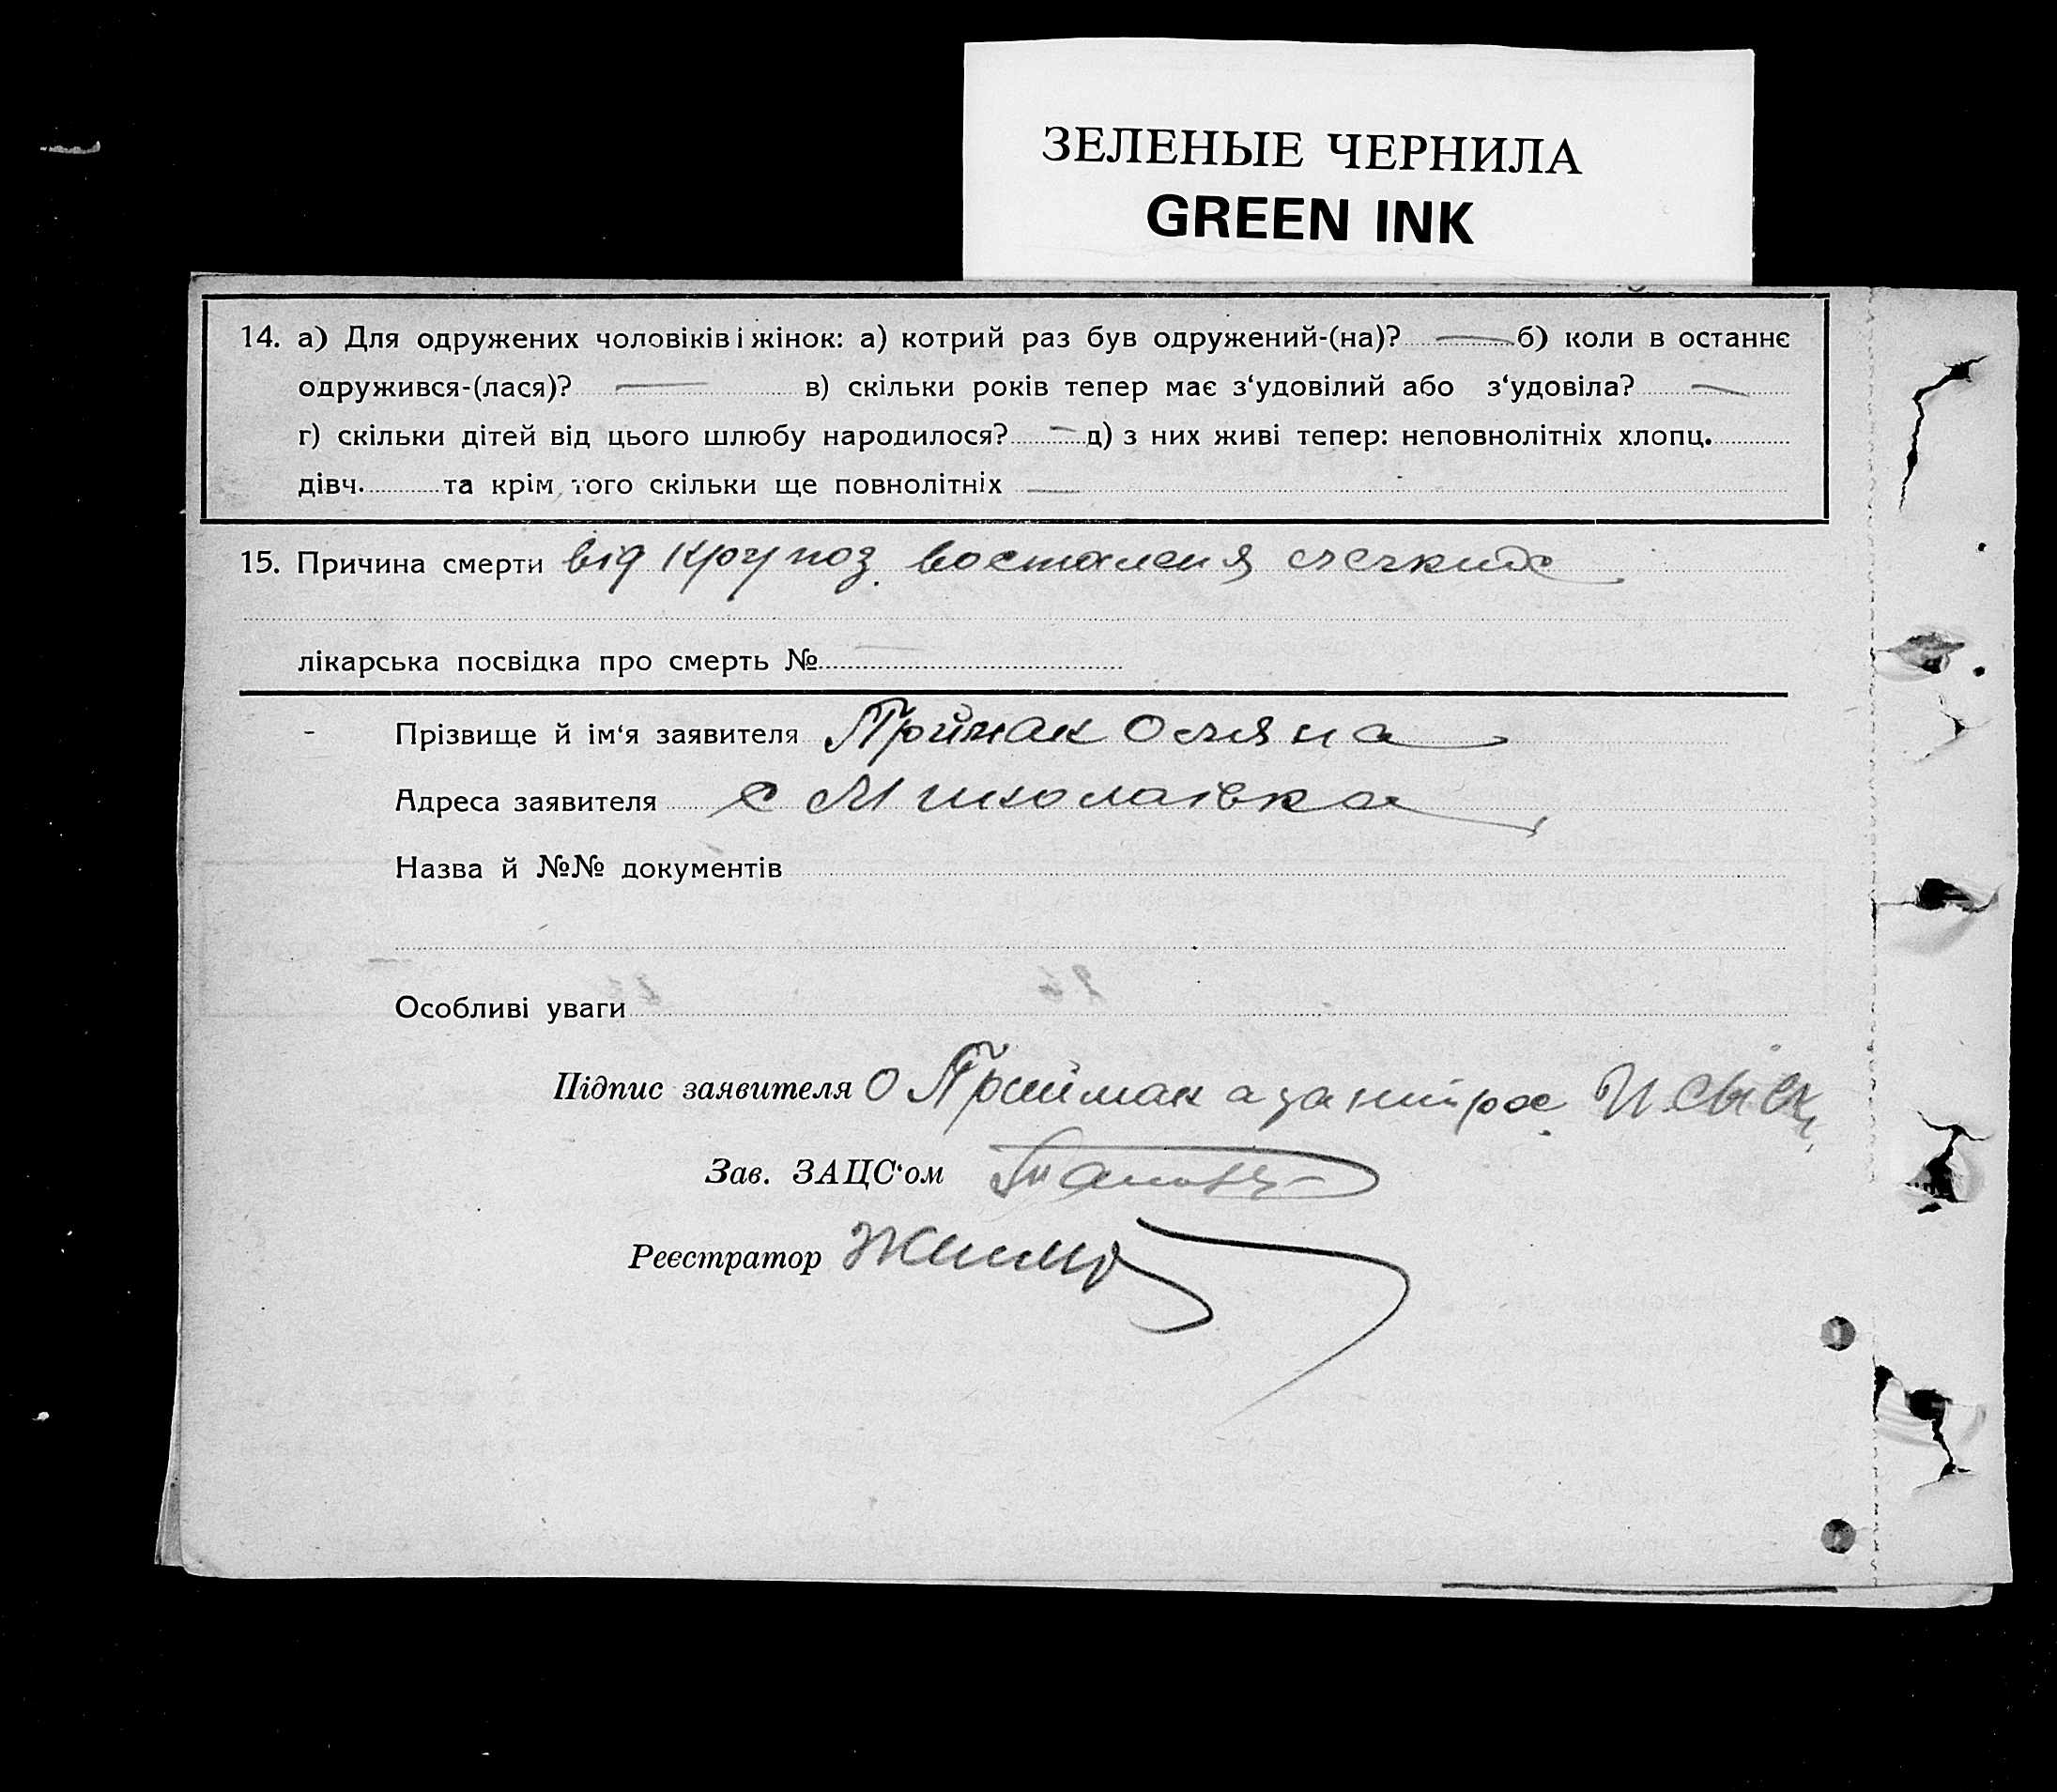 ЗЕЛЕНЫЕ ЧЕРНИЛА
GREEN INK
14. а) Для одружених чоловіків і жінок: а) котрий раз був одружений-(на)? — б) коли в останнє
одружився-(лася)? — в) скільки років тепер має з‘удовілий або з‘удовіла? —
г) скільки дітей від цього шлюбу народилося? — д) з них живі тепер: неповнолітніх хлопц.
дівч. та крім того скільки ще повнолітніх —
15. Причина смерти від крупоз. воспаленя
лікарська посвідка про смерть № —
Прізвище й ім‘я заявителя Приймак Оляна
Адреса заявителя с Миколаівка
Назва й №№ документів
Особливі уваги
Підпис заявителя О Приймак а за
Зав. ЗАЦС‘ом
Реєстратор